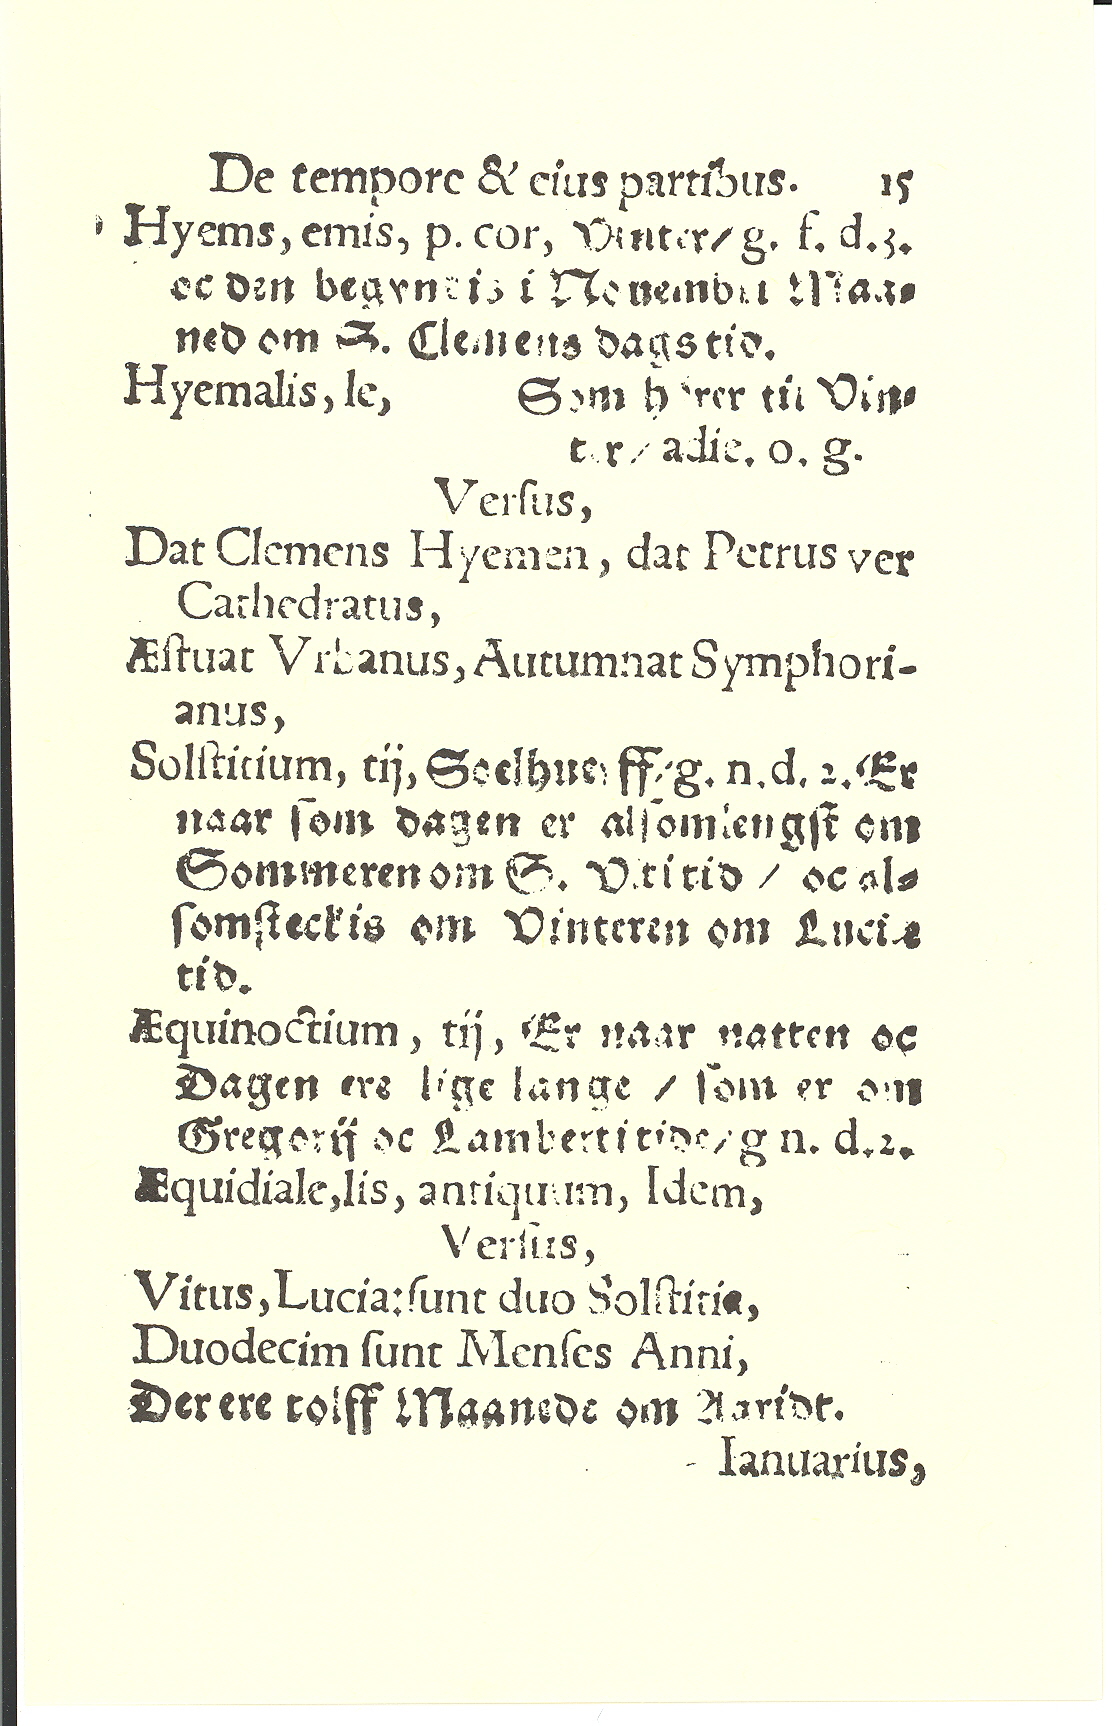 De tempore & eius partibus. 15
Hyems, emis, p. cor, Vinter/ g. f. d. 3.
oc den begyndis i Novembri Maa-
ned om S. Clemens dags tid.
Hyemalis, le, Som hører til Vin-
ter/ adie. o. g.
Verſus,
Dat Clemens Hyemen, dat Petrus ver
Cathedratus,
Æſtuat Vrbanus, Autumnat Symphori-
anus,
Solſtitium, tij, g. n. d. 2. Er
naar ſom dagen er alſomlengſt om
Sommeren om S. Viti tid / oc al-
ſomſteckis om Vinteren om Luciæ
tid.
Æquinoctium, tij, Er naar natten oc
Dagen ere lige lange / ſom er om
Gregorij oc Lamberti tide/ g n. d. 2.
Æquidiale, lis, antiquum, Idem,
Verſus,
Vitus, Lucia: ſunt duo Solſtitia,
Duodecim ſunt Menſes Anni,
Der ere tolff Maanede om Aaridt.
Ianuarius,